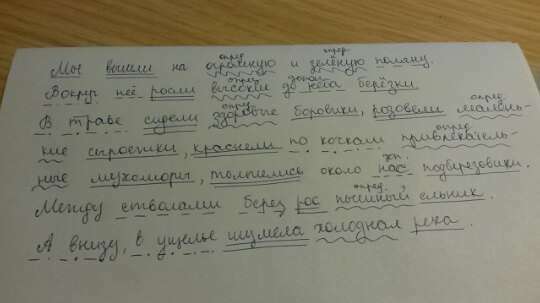 опред опред
Мы вышли на огромную и зелёную поляну.
опред допол
Вокруг неё росли высокие до неба берёзки.
опред опред
В траве сидели здоровые боровики, розовели малень-
опред
кие сыроежки, краснели по кочкам привлекатель-
доп.
ные мухоморы, толпились около нас подберезовики.
опред.
Между стволами берез рос пышный ельник.
А внизу, в ущелье шумела холодная река.